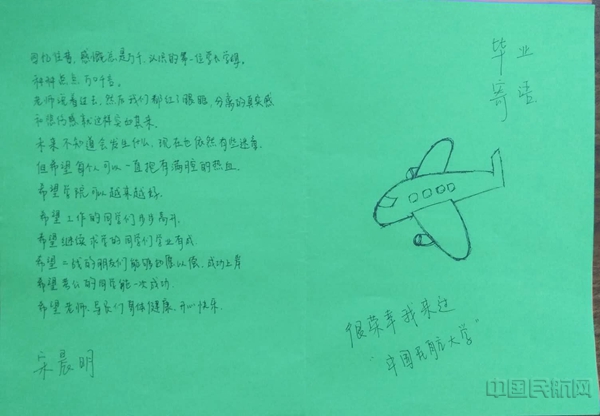 回忆往昔,感慨总是万千,认识的第一位学长学姐。
种种点点 历历在目。
老师说着过去,然而我们都红了眼眶,分离的真实感
和悲伤感就这样突如其来。
未来不知道会发生什么,现在也依然有些迷茫。
但希望每个人可以一直抱有满腔的热血。
希望学院可以越来越好。
希望工作的同学们步步高升。
希望继续求学的同学们学业有成。
希望二战的朋友们能够如愿以偿,成功上岸
希望考公的同学能一次成功
希望老师、导员们身体健康,开心快乐.
宋晨明
毕业
寄语
很荣幸我来过
"中国民航大学"
中国民航网